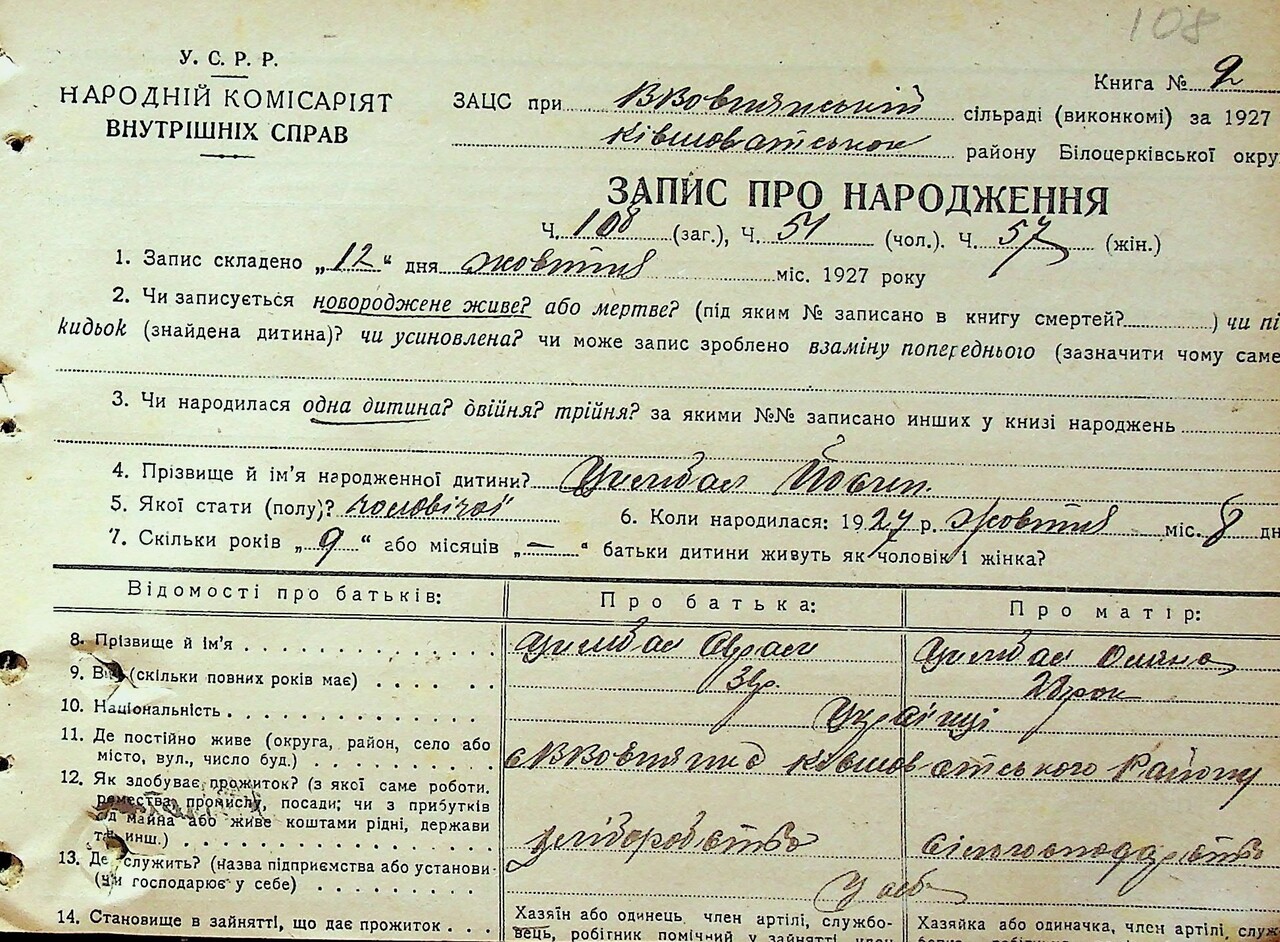 108
У. С. Р. Р.
НАРОДНІЙ КОМІСАРІЯТ
ВНУТРІШНІХ СПРАВ
Книга № 2
ЗАЦС при сільраді (виконкомі) за 1927
району Білоцерківської окру
ЗАПИС ПРО НАРОДЖЕННЯ
Ч. 108 (заг.), Ч. 51 (чол.). Ч. 57 (жін.)
1. Запис складено „12" дня жовтня міс. 1927 року
2. Чи записується новороджене живе? або мертве? (під яким № записано в книгу смертей? ) чи пі
кидьок (знайдена дитина)? чи усиновлена? чи може запис зроблено взаміну попереднього (зазначити чому саме
3. Чи народилася одна дитина? двійня? трійня? за якими №№ записано инших у книзі народжень
4. Прізвище й ім'я народженної дитини? Цимбал Йосип.
5. Якої стати (полу)? чоловічої 6. Коли народилася: 1927 р. жовтня міс. 8 дн
7. Скільки років „9" або місяців „—" батьки дитини живуть як чоловік і жінка?
Відомості про батьків: Про батька: Про матір:
8. Прізвище й ім'я Цимбал Цимбал
9. Вік (скільки повних років має)
10. Національність Українці
11. Де постійно живе (округа, район, село або
місто, вул., число буд.) Району
12. Як здобуває прожиток? (з якої саме роботи.
ремества, промислу, посади; чи з прибутків
від майна або живе коштами рідні, держави
та инш.) хліборобство
13. Де служить? (назва підприємства або установи
(чи господарює у себе) У себе
14. Становище в зайнятті, що дає прожиток
Хазяїн або одинець, член артілі, службо-
вець, робітник помічний у зайнятті, член
Хазяйка або одиначка, член артілі, служ